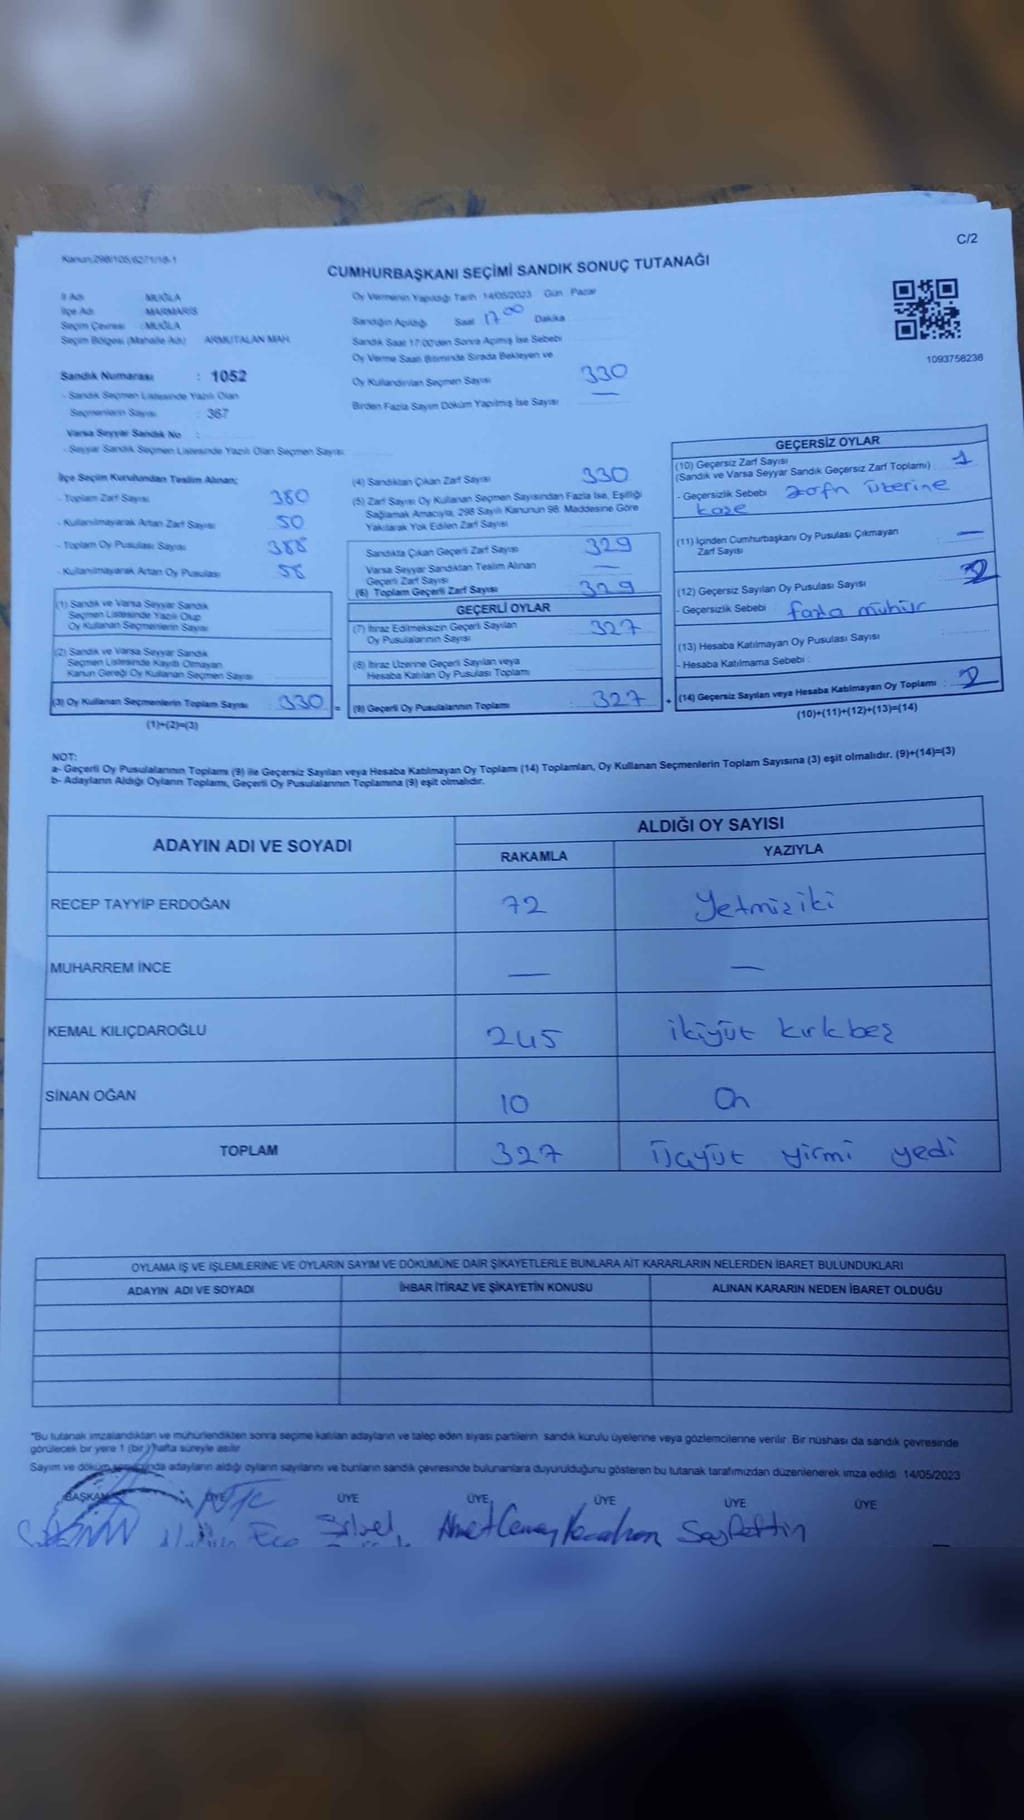 C/2
Kanun:298/105,6271/18-1
CUMHURBAŞKANI SEÇİMİ SANDIK SONUÇ TUTANAĞI
İl Adı MUĞLA
İlçe Adı MARMARİS
Seçim Çevresi : MUĞLA
Seçim Bölgesi (Mahalle Adı) ARMUTALAN MAH.
Sandık Numarası : 1052
- Sandık Seçmen Listesinde Yazılı Olan
Seçmenlerin Sayısı : 367
Varsa Seyyar Sandık No :
- Seyyar Sandık Seçmen Listesinde Yazılı Olan Seçmen Sayısı:
Oy Vermenin Yapıldığı Tarih :14/05/2023 Gün : Pazar
Sandığın Açıldığı Saat 17 00 Dakika
Sandık Saat 17:00'den Sonra Açımış İse Sebebi
Oy Verme Saati Bitiminde Sırada Bekleyen ve
Oy Kullandırılan Seçmen Sayısı 330
Birden Fazla Sayım Döküm Yapılmış İse Sayısı —
1093758238
İlçe Seçim Kurulundan Teslim Alınan;
- Toplam Zarf Sayısı 380
- Kullanılmayarak Artan Zarf Sayısı 50
- Toplam Oy Pusulası Sayısı 388
- Kullanılmayarak Artan Oy Pusulası 58
(1) Sandık ve Varsa Seyyar Sandık
Seçmen Listesinde Yazılı Olup
Oy Kullanan Seçmenlerin Sayısı
(2) Sandık ve Varsa Seyyar Sandık
Seçmen Listesinde Kayıtlı Olmayan
Kanun Gereği Oy Kullanan Seçmen Sayısı
(3) Oy Kullanan Seçmenlerin Toplam Sayısı : 330 =
(1)+(2)=(3)
(4) Sandıktan Çıkan Zarf Sayısı 330
(5) Zarf Sayısı Oy Kullanan Seçmen Sayısından Fazla İse, Eşitliği
Sağlamak Amacıyla, 298 Sayılı Kanunun 98. Maddesine Göre
Yakılarak Yok Edilen Zarf Sayısı
Sandıkta Çıkan Geçerli Zarf Sayısı 329
Varsa Seyyar Sandıktan Teslim Alınan
Geçerli Zarf Sayısı —
(6) Toplam Geçerli Zarf Sayısı 329
GEÇERLİ OYLAR
(7) İtiraz Edilmeksizin Geçerli Sayılan
Oy Pusulalarının Sayısı 327
(8) İtiraz Üzerine Geçerli Sayılan veya
Hesaba Katılan Oy Pusulası Toplamı
(9) Geçerli Oy Pusulalarının Toplamı : 327 +
GEÇERSİZ OYLAR
(10) Geçersiz Zarf Sayısı
(Sandık ve Varsa Seyyar Sandık Geçersiz Zarf Toplamı) 1
- Geçersizlik Sebebi zarfn üzerine
kaşe
(11) İçinden Cumhurbaşkanı Oy Pusulası Çıkmayan
Zarf Sayısı —
(12) Geçersiz Sayılan Oy Pusulası Sayısı 2
- Geçersizlik Sebebi fazla mühür
(13) Hesaba Katılmayan Oy Pusulası Sayısı
- Hesaba Katılmama Sebebi :
(14) Geçersiz Sayılan veya Hesaba Katılmayan Oy Toplamı :
(10)+(11)+(12)+(13)=(14)
NOT:
a- Geçerli Oy Pusulalarının Toplamı (9) ile Geçersiz Sayılan veya Hesaba Katılmayan Oy Toplamı (14) Toplamları, Oy Kullanan Seçmenlerin Toplam Sayısına (3) eşit olmalıdır. (9)+(14)=(3)
b- Adayların Aldığı Oyların Toplamı, Geçerli Oy Pusulalarının Toplamına (9) eşit olmalıdır.
ADAYIN ADI VE SOYADI
ALDIĞI OY SAYISI
RAKAMLA YAZIYLA
RECEP TAYYİP ERDOĞAN 72 Yetmişiki
MUHARREM İNCE — —
KEMAL KILIÇDAROĞLU 245 ikiyüz kırkbeş
SİNAN OĞAN 10 On
TOPLAM 327 Üçyüz yirmi yedi
OYLAMA İŞ VE İŞLEMLERİNE VE OYLARIN SAYIM VE DÖKÜMÜNE DAİR ŞİKAYETLERLE BUNLARA AİT KARARLARIN NELERDEN İBARET BULUNDUKLARI
ADAYIN ADI VE SOYADI İHBAR İTİRAZ VE ŞİKAYETİN KONUSU ALINAN KARARIN NEDEN İBARET OLDUĞU
*Bu tutanak imzalandıktan ve mühürlendikten sonra seçime katılan adayların ve talep eden siyasi partilerin sandık kurulu üyelerine veya gözlemcilerine verilir. Bir nüshası da sandık çevresinde
görülecek bir yere 1 (bir) hafta süreyle asılır
Sayım ve döküm adayların aldığı oyların sayılarını ve bunların sandık çevresinde bulunanlara duyurulduğunu gösteren bu tutanak tarafımızdan düzenlenerek imza edildi. 14/05/2023
BAŞKAN ÜYE ÜYE ÜYE ÜYE ÜYE ÜYE